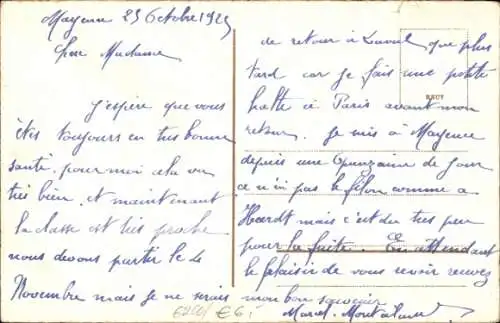 Mayence 25 Octobre 1925
Chère Madame
J'espère que vous
êtes toujours en très bonne
santé. pour moi cela va
très bien. et maintenant
la classe est très proche
nous devons partir le 4
Novembre mais je ne serais
de retour à Laval que plus
tard car je fais une petite
halte à Paris avant mon
retour. Je suis à Mayence
depuis une Quinzaine de jour
ce n'ai pas le filon comme a
Hardt mais c'est du très peu
pour la fuite. En attendant
le plaisir de vous revoir recevez
mon bon souvenir
Marcel